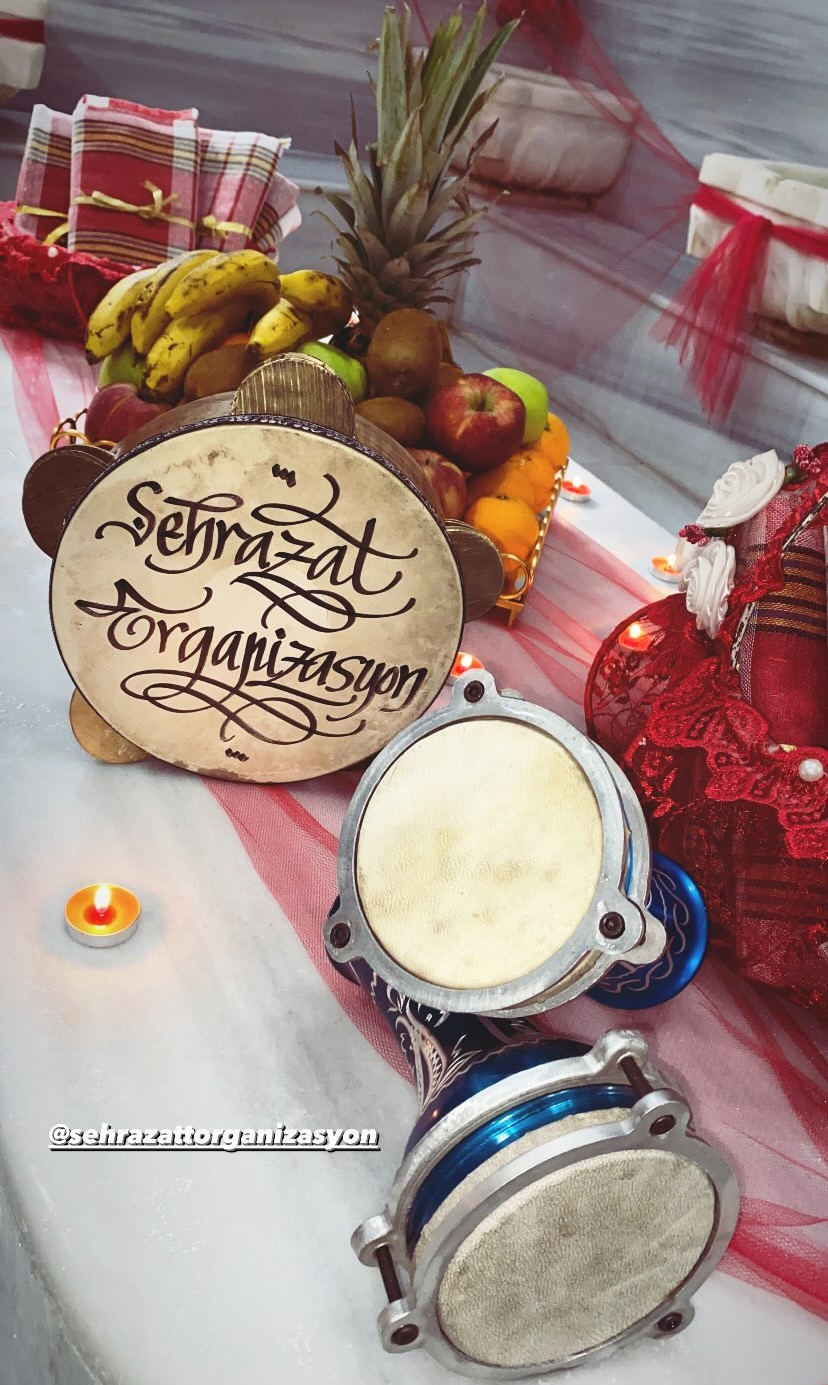 Sehrazat
Organizasyon
@sehrazattorganizasyon